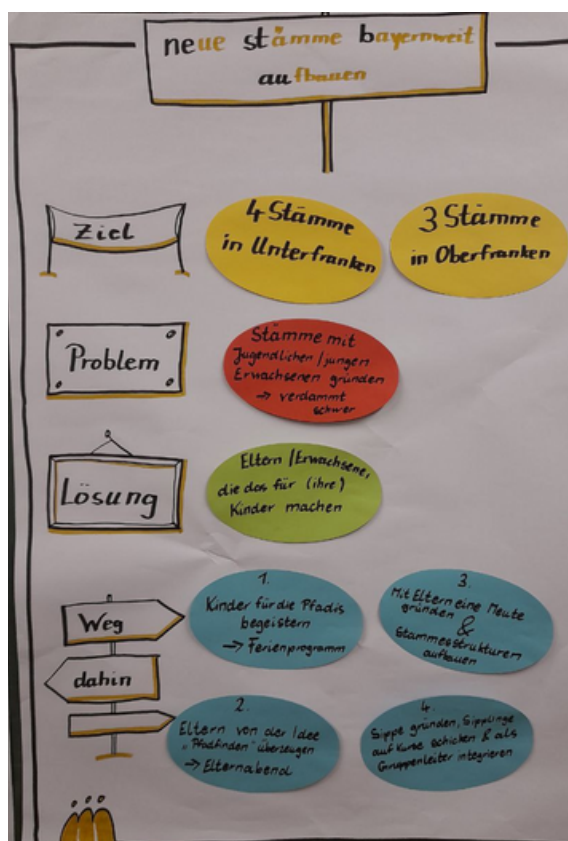 neue stämme bayernweit
aufbauen
Ziel
4 Stämme
in Unterfranken
3 Stämme
in Oberfranken
Problem
Stämme mit
Jugendlichen / jungen
Erwachsenen gründen
→ verdammt
schwer
Lösung
Eltern / Erwachsene,
die das für (ihre)
Kinder machen
Weg
dahin
1.
Kinder für die Pfadis
begeistern
→ Ferienprogramm
2.
Eltern von der Idee
„Pfadfinden" überzeugen
→ Elternabend
3.
Mit Eltern eine Meute
gründen
&
Stammesstrukturen
aufbauen
4.
Sippe gründen, Sipplinge
auf Kurse schicken & als
Gruppenleiter integrieren